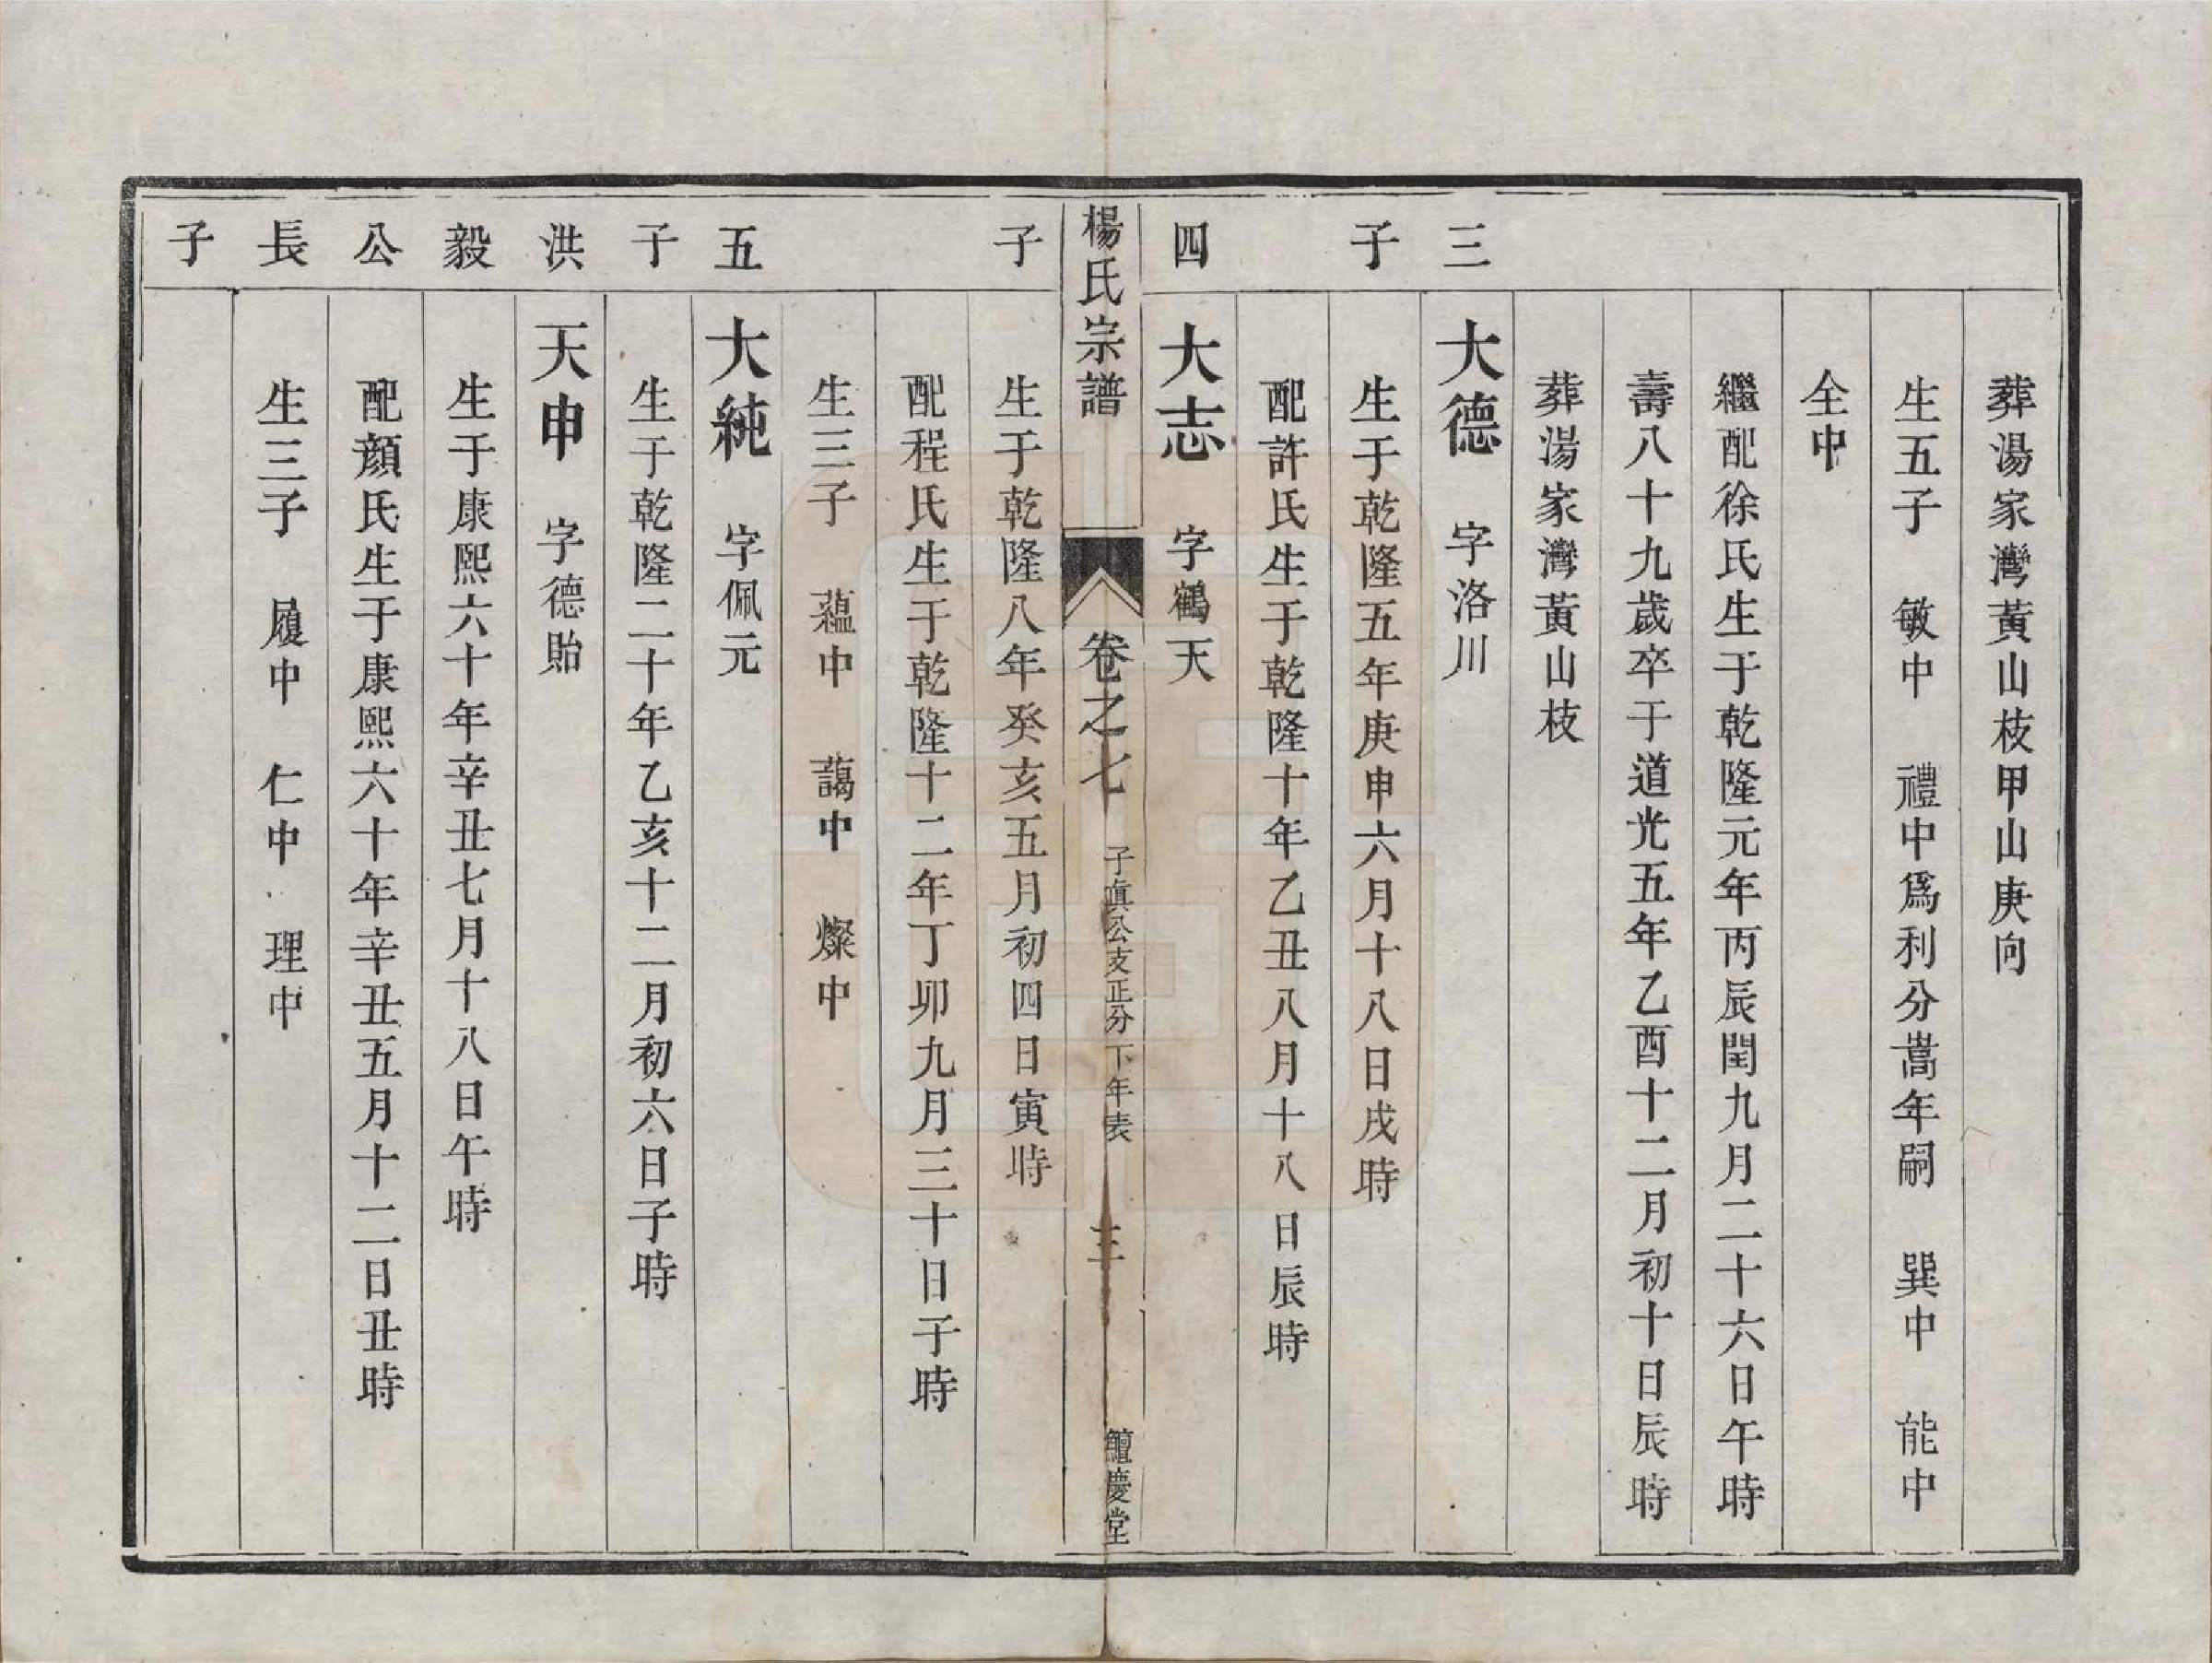 葬湯家灣黃山枝甲山庚向
生五子　敏中　禮中爲利分嵩年嗣　巽中　能中
全中
繼配徐氏生于乾隆元年丙辰閏九月二十六日午時
壽八十九歲卒于道光五年乙酉十二月初十日辰時
葬湯家灣黃山枝
三子
大德　字洛川
生于乾隆五年庚申六月十八日戌時
配許氏生于乾隆十年乙丑八月十八日辰時
四子
大志　字鶴天
楊氏宗譜
卷之七　子眞公支正分下年表　三　鱣慶堂
生于乾隆八年癸亥五月初四日寅時
配程氏生于乾隆十二年丁卯九月三十日子時
生三子　蘊中　藹中　燦中
五子
大純　字佩元
生于乾隆二十年乙亥十二月初六日子時
洪毅公長子
天申　字德貽
生于康熙六十年辛丑七月十八日午時
配顏氏生于康熙六十年辛丑五月十二日丑時
生三子　履中　仁中　理中